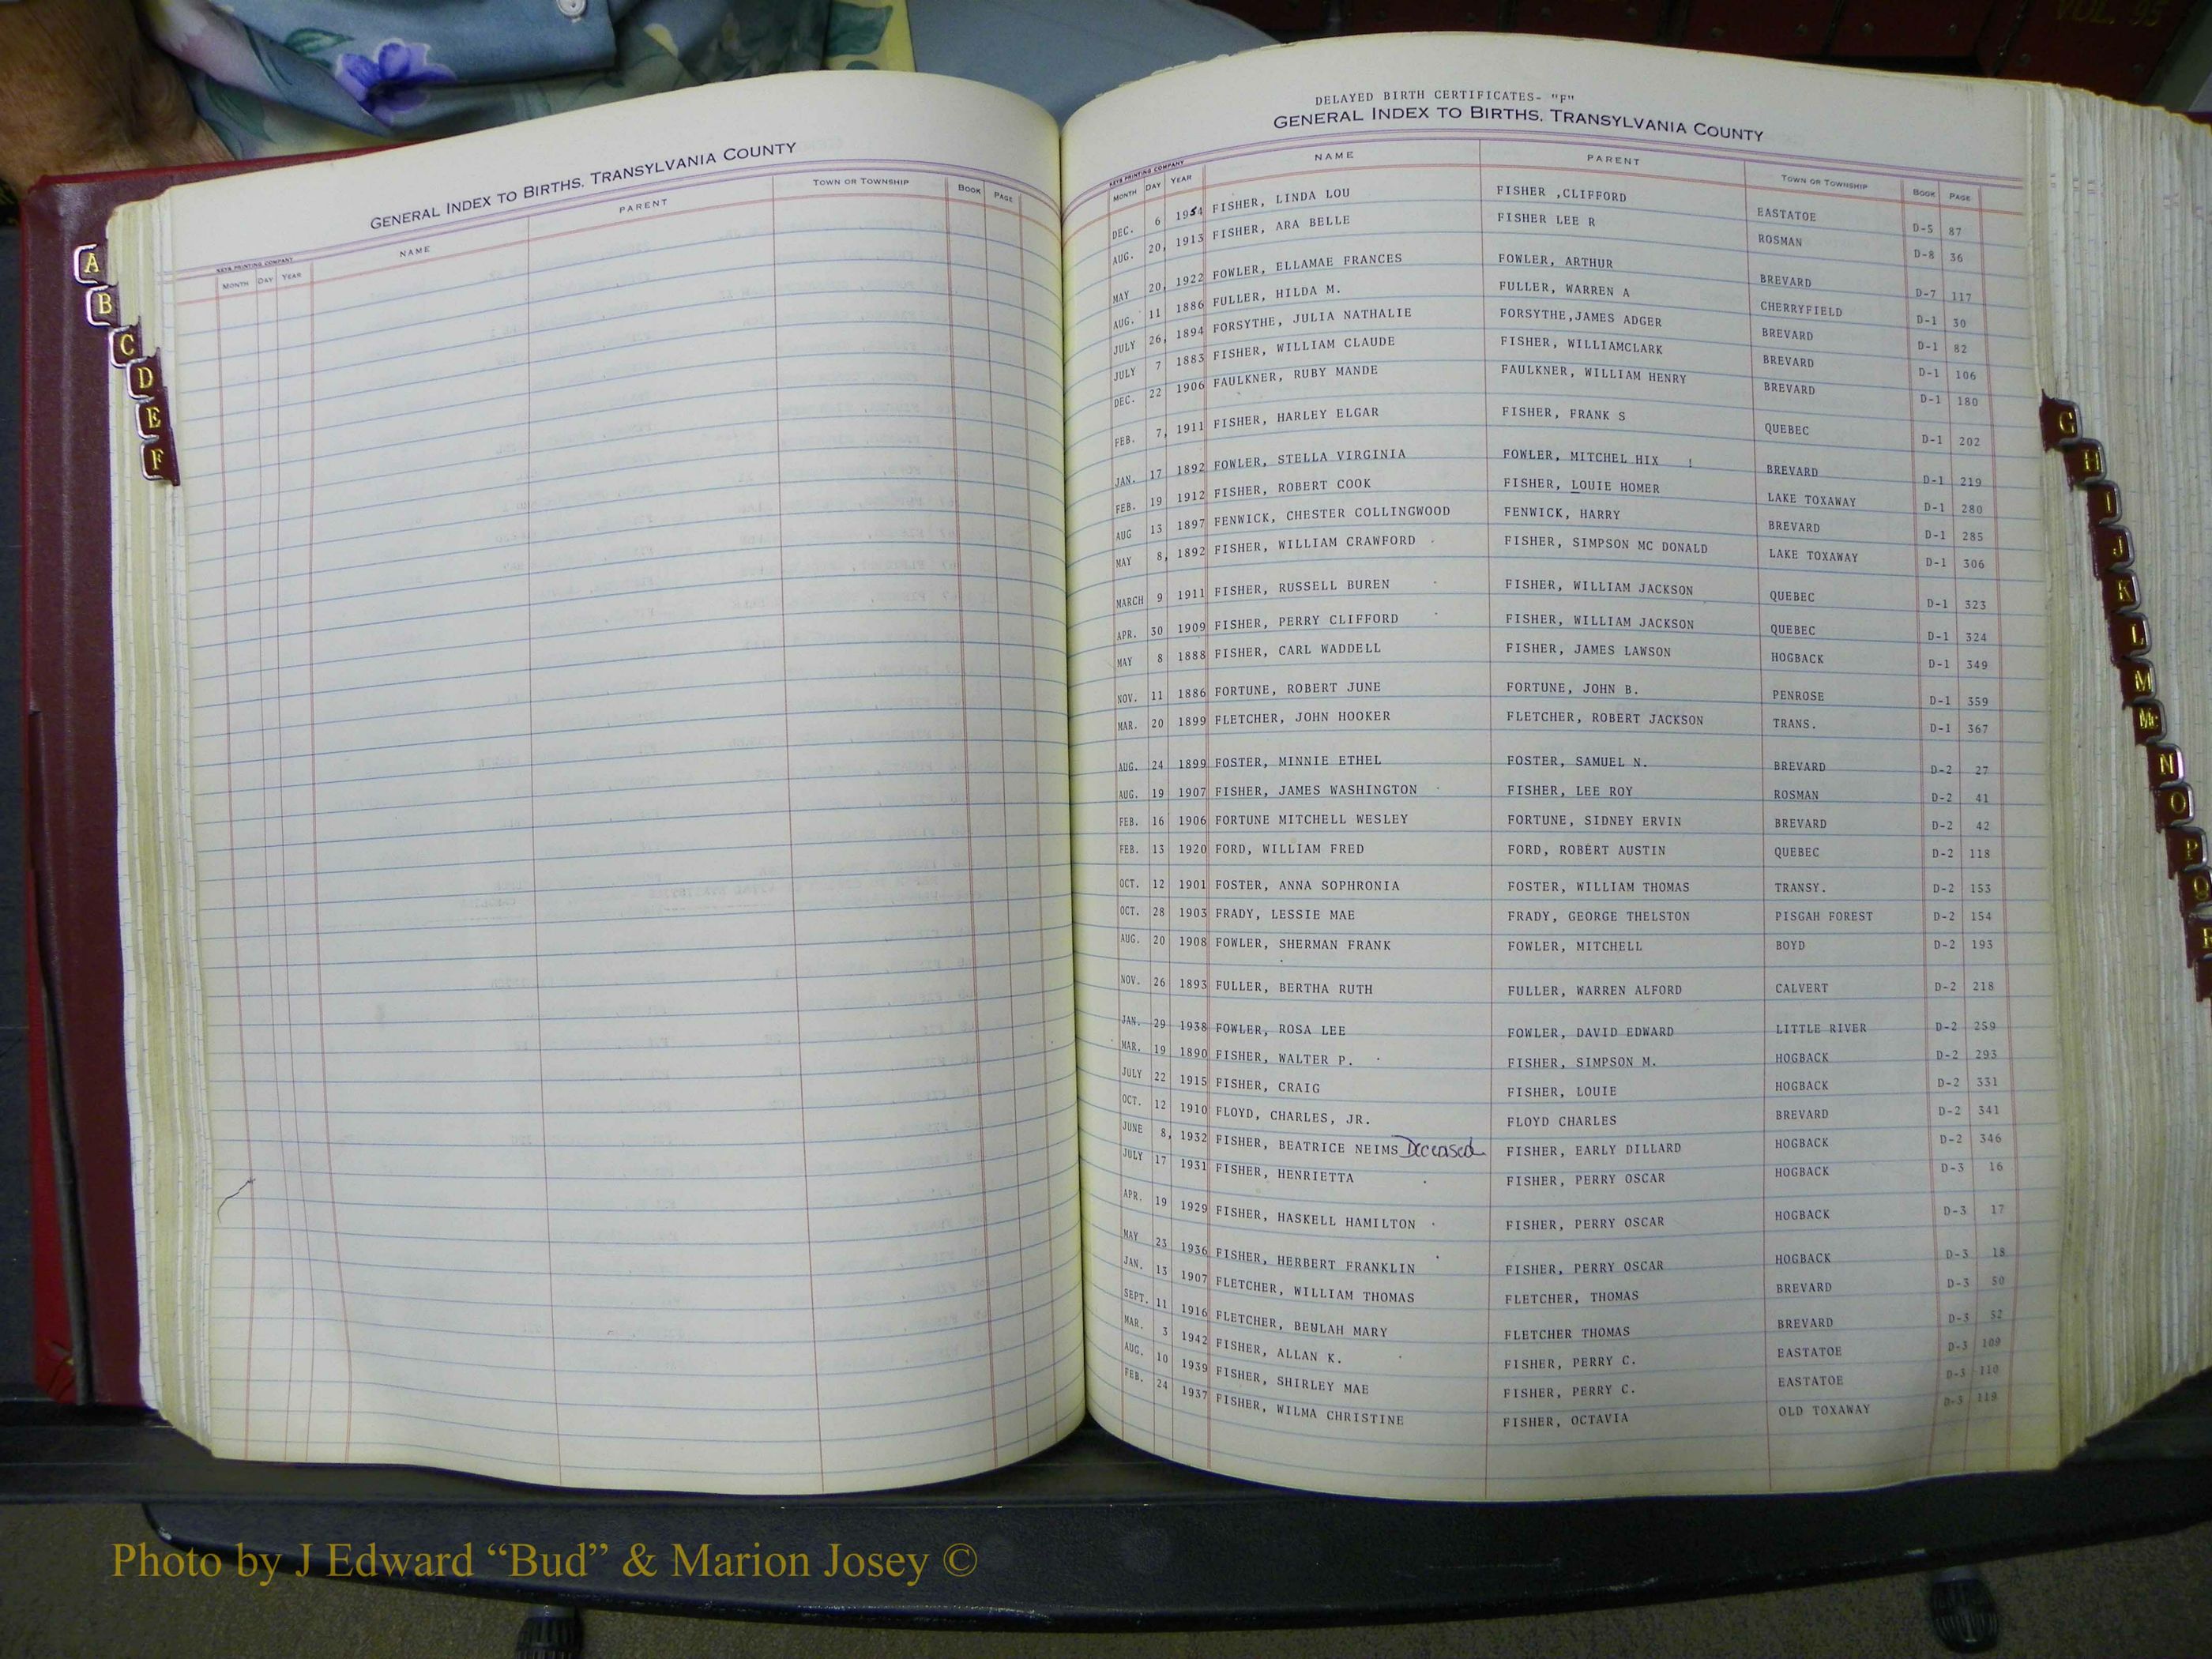 VOL. 95
GENERAL INDEX TO BIRTHS, TRANSYLVANIA COUNTY
KEYS PRINTING COMPANY
MONTH DAY YEAR NAME PARENT TOWN OR TOWNSHIP BOOK PAGE
A
B
C
D
E
F
DELAYED BIRTH CERTIFICATES- "F"
GENERAL INDEX TO BIRTHS, TRANSYLVANIA COUNTY
KEYS PRINTING COMPANY
MONTH DAY YEAR NAME PARENT TOWN OR TOWNSHIP BOOK PAGE
DEC. 6 1954 FISHER, LINDA LOU FISHER ,CLIFFORD EASTATOE D-5 87
AUG. 20, 1913 FISHER, ARA BELLE FISHER LEE R ROSMAN D-8 36
MAY 20, 1922 FOWLER, ELLAMAE FRANCES FOWLER, ARTHUR BREVARD D-7 117
AUG. 11 1886 FULLER, HILDA M. FULLER, WARREN A CHERRYFIELD D-1 30
JULY 26, 1894 FORSYTHE, JULIA NATHALIE FORSYTHE,JAMES ADGER BREVARD D-1 82
JULY 7 1883 FISHER, WILLIAM CLAUDE FISHER, WILLIAMCLARK BREVARD D-1 106
DEC. 22 1906 FAULKNER, RUBY MANDE FAULKNER, WILLIAM HENRY BREVARD D-1 180
FEB. 7, 1911 FISHER, HARLEY ELGAR FISHER, FRANK S QUEBEC D-1 202
JAN. 17 1892 FOWLER, STELLA VIRGINIA FOWLER, MITCHEL HIX ! BREVARD D-1 219
FEB. 19 1912 FISHER, ROBERT COOK FISHER, LOUIE HOMER LAKE TOXAWAY D-1 280
AUG 13 1897 FENWICK, CHESTER COLLINGWOOD FENWICK, HARRY BREVARD D-1 285
MAY 8, 1892 FISHER, WILLIAM CRAWFORD FISHER, SIMPSON MC DONALD LAKE TOXAWAY D-1 306
MARCH 9 1911 FISHER, RUSSELL BUREN FISHER, WILLIAM JACKSON QUEBEC D-1 323
APR. 30 1909 FISHER, PERRY CLIFFORD FISHER, WILLIAM JACKSON QUEBEC D-1 324
MAY 8 1888 FISHER, CARL WADDELL FISHER, JAMES LAWSON HOGBACK D-1 349
NOV. 11 1886 FORTUNE, ROBERT JUNE FORTUNE, JOHN B. PENROSE D-1 359
MAR. 20 1899 FLETCHER, JOHN HOOKER FLETCHER, ROBERT JACKSON TRANS. D-1 367
AUG. 24 1899 FOSTER, MINNIE ETHEL FOSTER, SAMUEL N. BREVARD D-2 27
AUG. 19 1907 FISHER, JAMES WASHINGTON FISHER, LEE ROY ROSMAN D-2 41
FEB. 16 1906 FORTUNE MITCHELL WESLEY FORTUNE, SIDNEY ERVIN BREVARD D-2 42
FEB. 13 1920 FORD, WILLIAM FRED FORD, ROBERT AUSTIN QUEBEC D-2 118
OCT. 12 1901 FOSTER, ANNA SOPHRONIA FOSTER, WILLIAM THOMAS TRANSY. D-2 153
OCT. 28 1903 FRADY, LESSIE MAE FRADY, GEORGE THELSTON PISGAH FOREST D-2 154
AUG. 20 1908 FOWLER, SHERMAN FRANK FOWLER, MITCHELL BOYD D-2 193
NOV. 26 1893 FULLER, BERTHA RUTH FULLER, WARREN ALFORD CALVERT D-2 218
JAN. 29 1938 FOWLER, ROSA LEE FOWLER, DAVID EDWARD LITTLE RIVER D-2 259
MAR. 19 1890 FISHER, WALTER P. FISHER, SIMPSON M. HOGBACK D-2 293
JULY 22 1915 FISHER, CRAIG FISHER, LOUIE HOGBACK D-2 331
OCT. 12 1910 FLOYD, CHARLES, JR. FLOYD CHARLES BREVARD D-2 341
JUNE 8, 1932 FISHER, BEATRICE NEIMS Deceased FISHER, EARLY DILLARD HOGBACK D-2 346
JULY 17 1931 FISHER, HENRIETTA FISHER, PERRY OSCAR HOGBACK D-3 16
APR. 19 1929 FISHER, HASKELL HAMILTON FISHER, PERRY OSCAR HOGBACK D-3 17
MAY 23 1936 FISHER, HERBERT FRANKLIN FISHER, PERRY OSCAR HOGBACK D-3 18
JAN. 13 1907 FLETCHER, WILLIAM THOMAS FLETCHER, THOMAS BREVARD D-3 50
SEPT. 11 1916 FLETCHER, BEULAH MARY FLETCHER THOMAS BREVARD D-3 52
MAR. 3 1942 FISHER, ALLAN K. FISHER, PERRY C. EASTATOE D-3 109
AUG. 10 1939 FISHER, SHIRLEY MAE FISHER, PERRY C. EASTATOE D-3 110
FEB. 24 1937 FISHER, WILMA CHRISTINE FISHER, OCTAVIA OLD TOXAWAY D-3 119
G
H
I
J
K
L
M
Mc
N
O
P
Q
R
Photo by J Edward “Bud” & Marion Josey ©